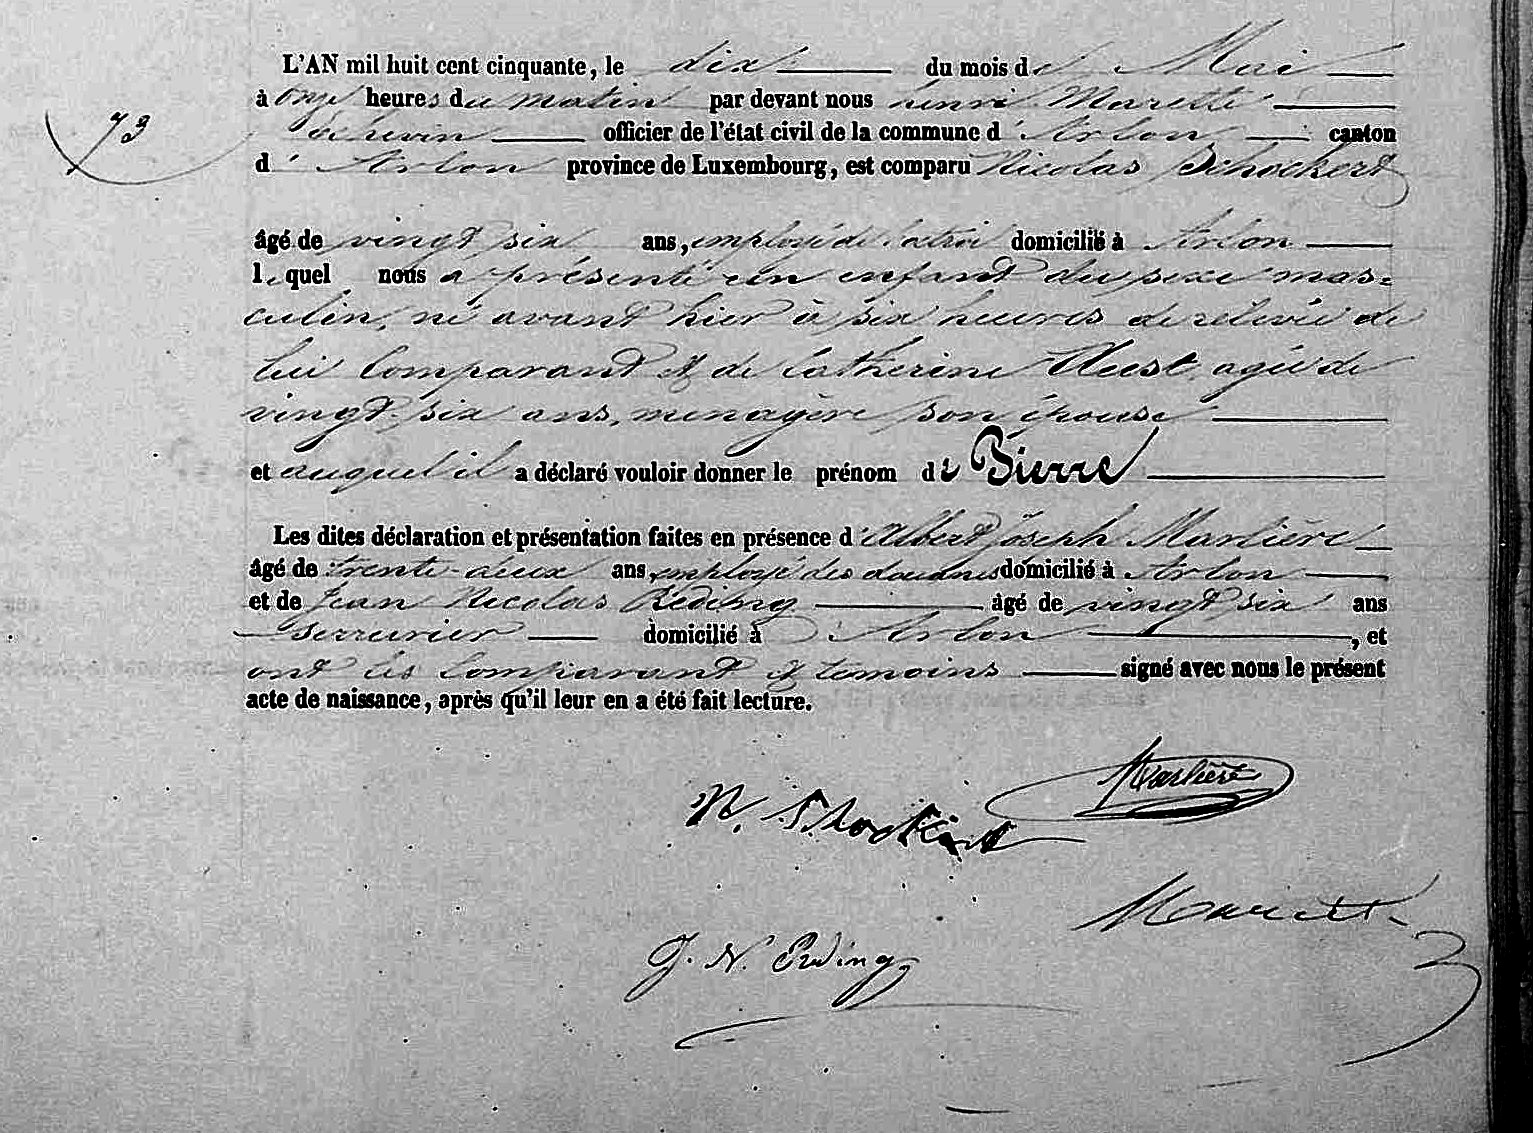 L'AN mil huit cent cinquante, le dix du mois de Mai
à onze heures du matin par devant nous henri Marette
73
échevin officier de l'état civil de la commune d'Arlon canton
d'Arlon province de Luxembourg, est comparu Nicolas Schockert
âgé de vingt six ans, employé de l'octroi domicilié à Arlon
lequel nous a présenté un enfant du sexe mas=
culin, né avant hier à six heures de relevée de
lui Comparant et de Catherine agée de
vingt-six ans, menagère son épouse
et auquel il a déclaré vouloir donner le prénom de Pierre
Les dites déclaration et présentation faites en présence d'Albert Joseph Marlière
âgé de trente-deux ans, employé des douanes domicilié à Arlon
et de Jean Nicolas Réding âgé de vingt six ans
serrurier domicilié à Arlon, et
ont les Comparant et temoins signé avec nous le présent
acte de naissance, après qu'il leur en a été fait lecture.
Marlière
N. Schockert
Marette
J. N. Erding